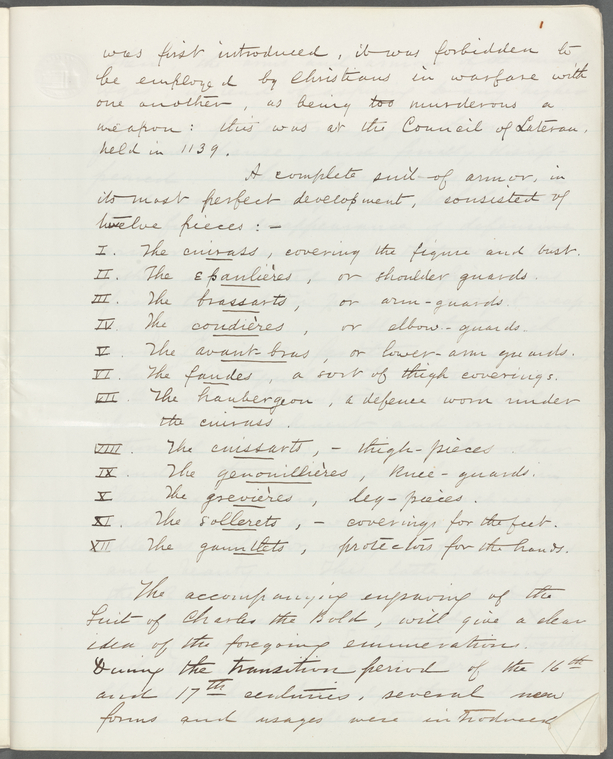 was first introduced, it was forbidden to
be employed by Christians in warfare with
one another, as being too murderous a
weapon: this was at the Council of Lateran,
held in 1139.
A complete suit of armor, in
its most perfect development, consisted of
twelve pieces:—
I. The cuirass, covering the figure and bust.
II. The epaulières, or shoulder guards.
III. The brassarts, or arm-guards.
IV. The coudières, or elbow-guards.
V. The avant-bras, or lower-arm guards.
VI. The faudes, a sort of thigh coverings.
VII. The haubergeon, a defence worn under
the cuirass.
VIII. The cuissarts, – thigh-pieces.
IX. The genouillières, knee-guards.
X. The grevières, leg-pieces.
XI. The sollerets, – coverings for the feet.
XII. The gauntlets, protectors for the hands.
The accompanying engraving of the
Suit of Charles the Bold, will give a clear
idea of the foregoing enumeration.
During the transition period of the 16th
and 17th centuries, several new
forms and usages were introduced